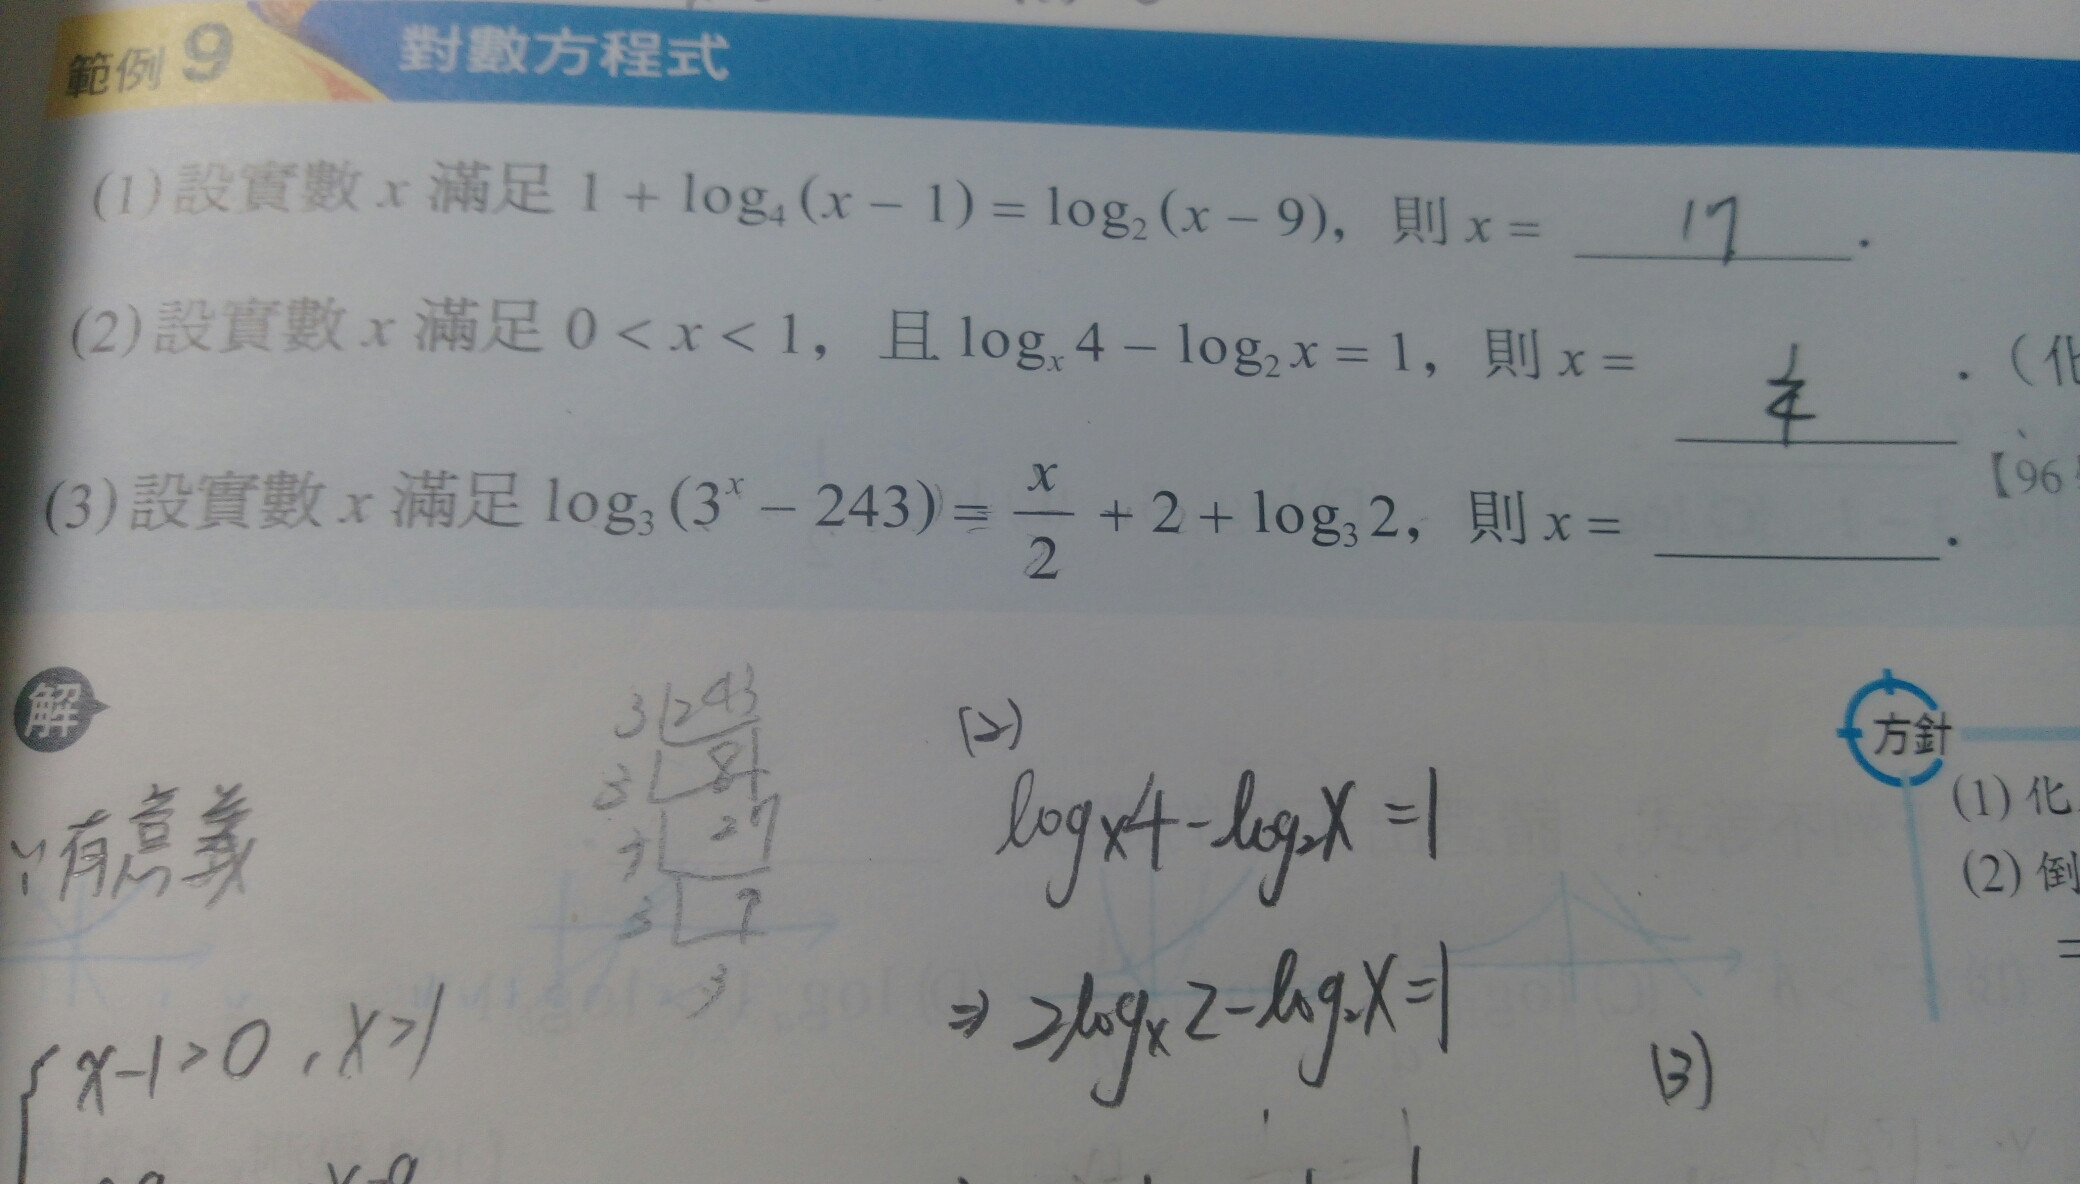 範例 9 對數方程式
(1) 設實數 x 滿足 1 + log₄(x − 1) = log₂(x − 9)，則 x = 17 .
(2) 設實數 x 滿足 0 < x < 1，且 logₓ4 − log₂x = 1，則 x = 1/4 .（化
【96
(3) 設實數 x 滿足 log₃(3ˣ − 243) = x/2 + 2 + log₃2，則 x = ____ .
解
∵有意義
x-1>0 , x>1
3 243
3 81
27
3 9
3
(2)
logₓ4-log₂x=1
⇒ 2logₓ2-log₂x=1
(3)
方針
(1) 化
(2) 倒
=